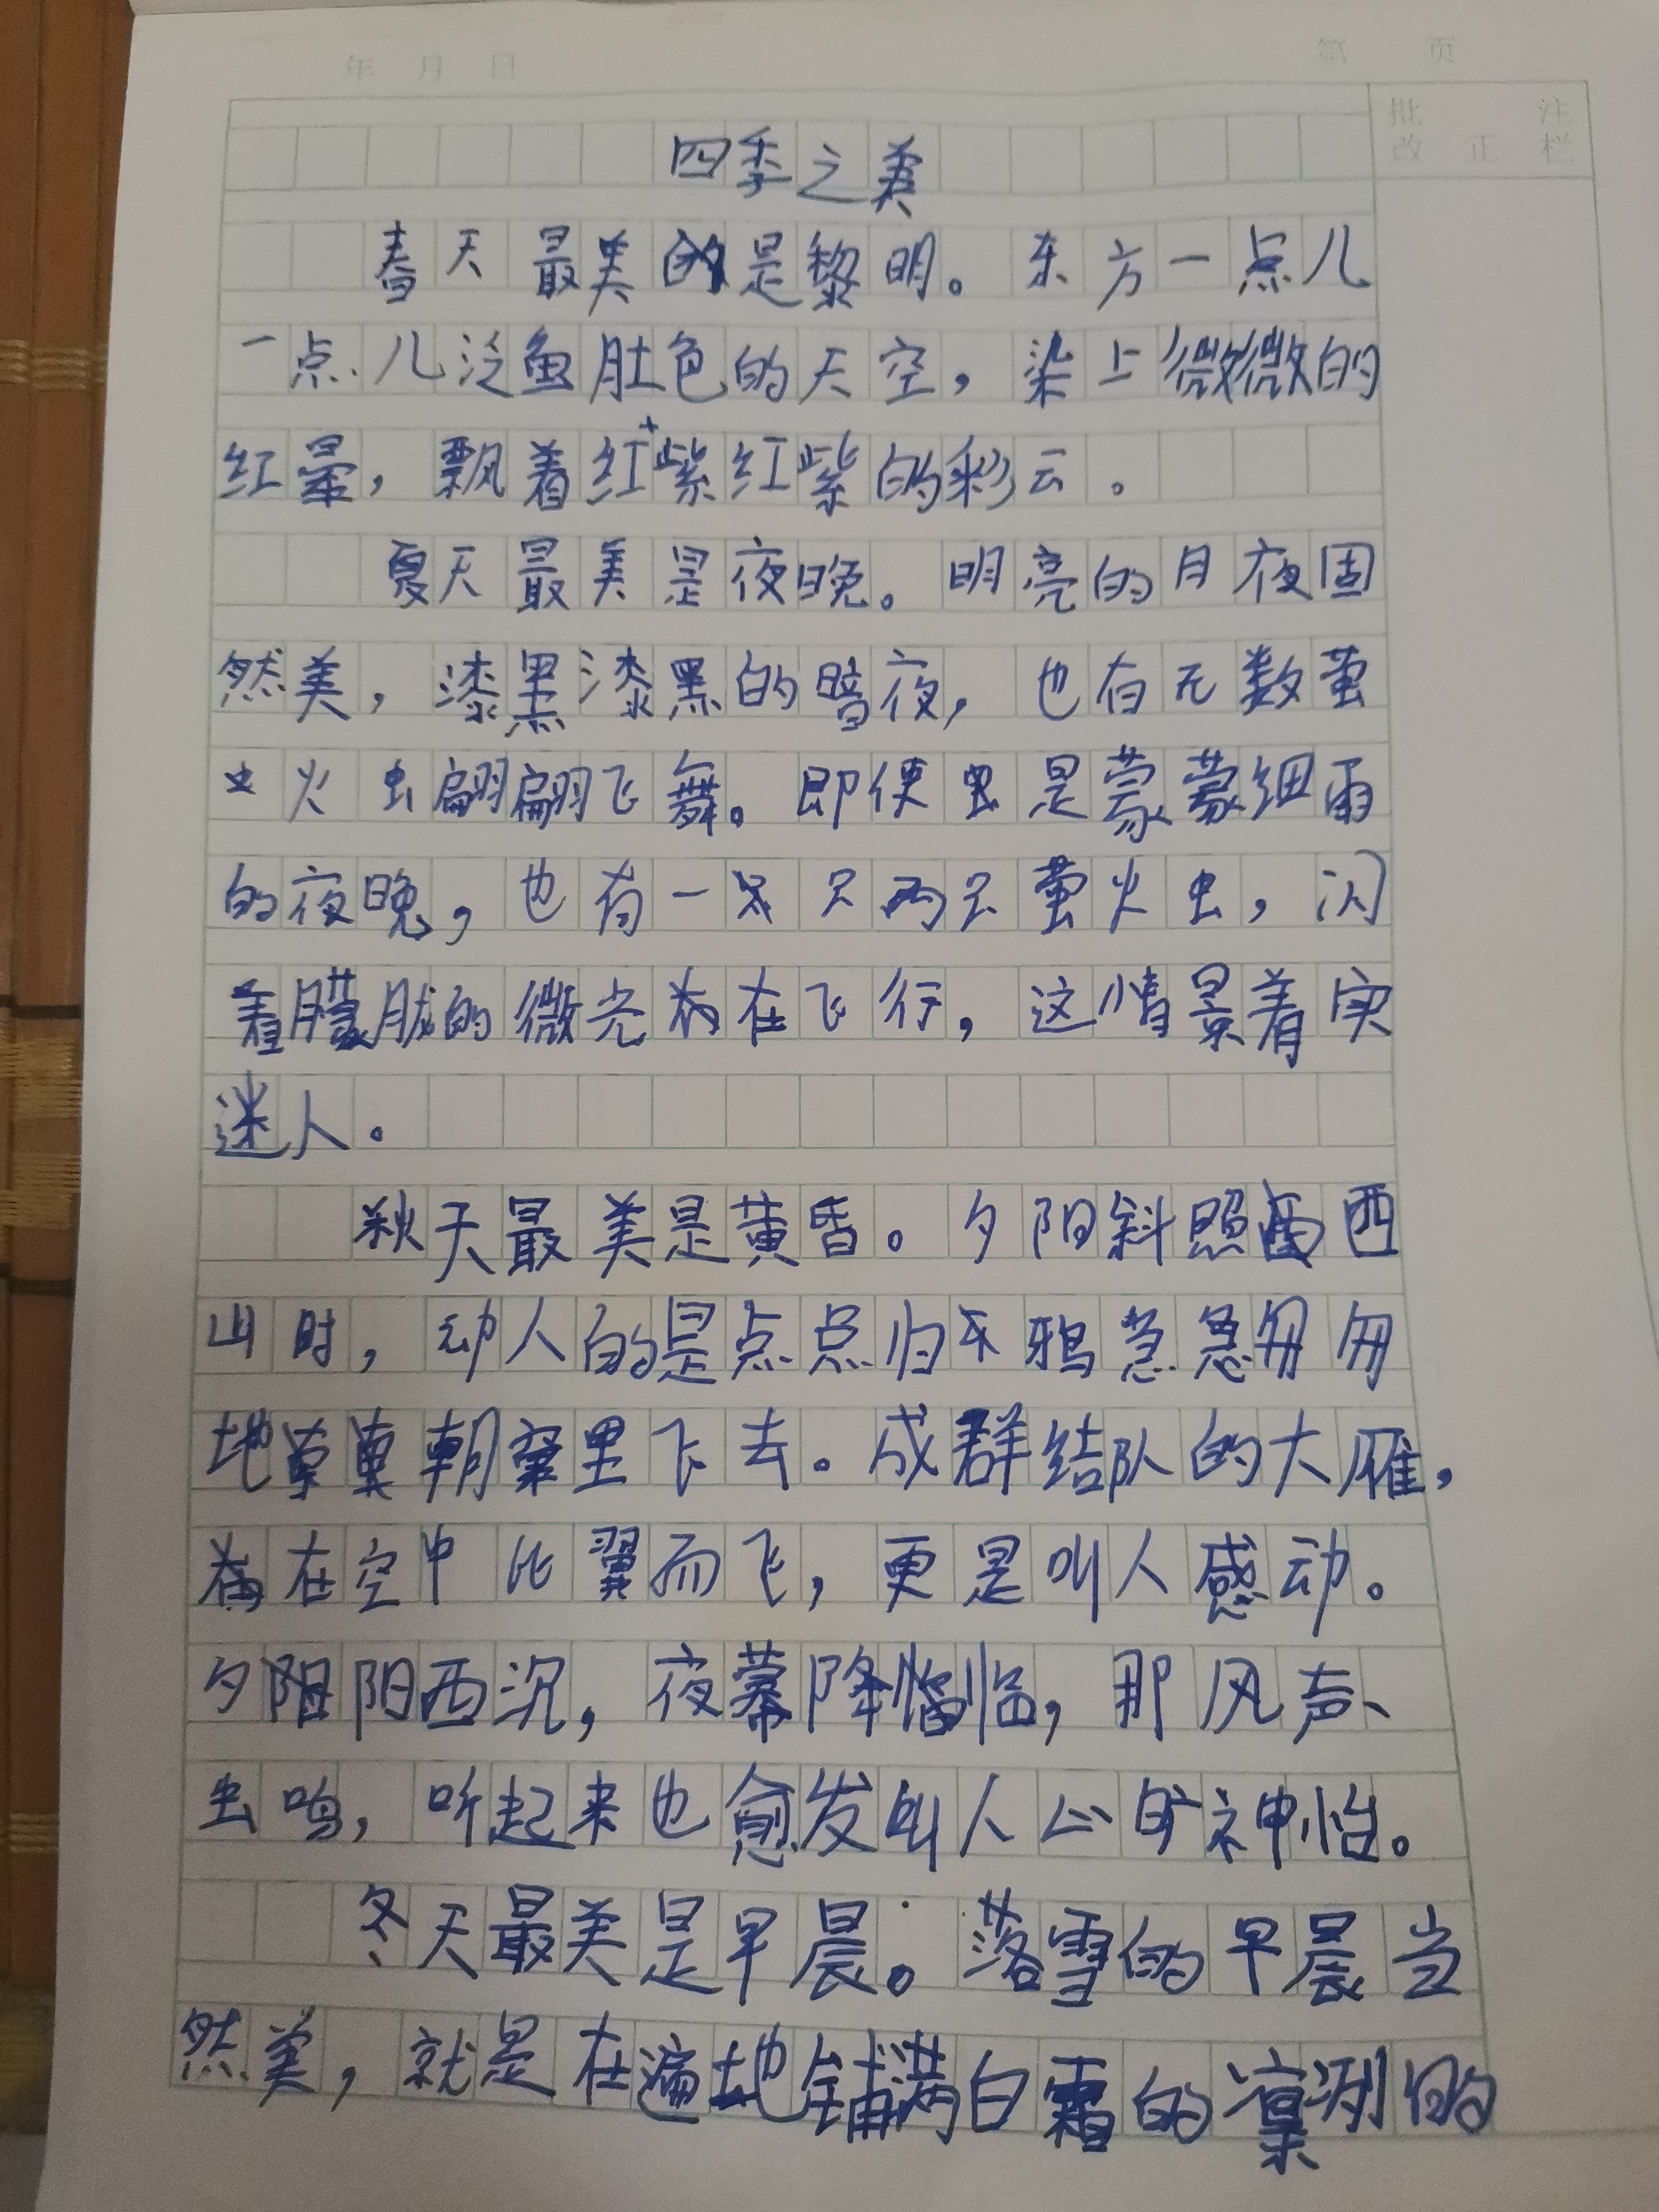 年 月 日
第 页
批 注
改 正 栏
四季之美
春天最美的是黎明。东方一点儿
一点儿泛鱼肚色的天空，染上微微的
红晕，飘着红紫红紫的彩云。
夏天最美是夜晚。明亮的月夜固
然美，漆黑漆黑的暗夜，也有无数萤
火虫翩翩飞舞。即便是蒙蒙细雨
的夜晚，也有一只两只萤火虫，闪
着朦胧的微光在飞行，这情景着实
迷人。
秋天最美是黄昏。夕阳斜照西
山时，动人的是点点归鸦急急匆匆
地朝窠里飞去。成群结队的大雁，
在空中比翼而飞，更是叫人感动。
夕阳西沉，夜幕降临，那风声、
虫鸣，听起来也愈发叫人心旷神怡。
冬天最美是早晨。落雪的早晨当
然美，就是在遍地铺满白霜的凛冽的